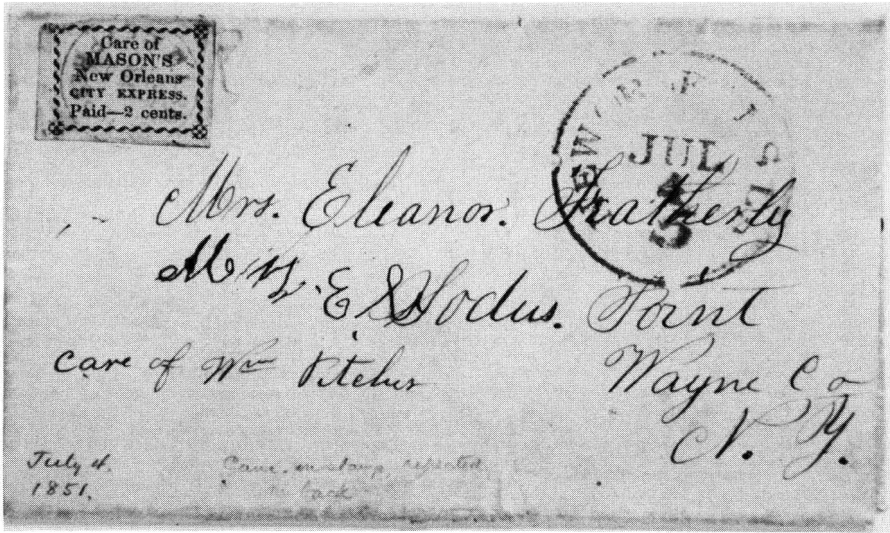 Care of
MASON'S
New Orleans
CITY EXPRESS.
Paid—2 cents.
JUL
5
Mrs. Eleanor. Fratherly
Mrs. E
Sodus. Point
care of Wm Pitcher
Wayne Co
N. Y.
July 4.
1851.
on stamp, repeated
on back